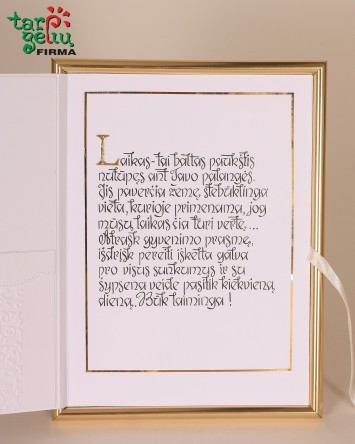 tarp
gėlių
FIRMA
Laikas-tai baltas paukštis
nutūpęs ant Tavo palangės.
Jis paverčia žemę stebuklinga
vieta, kurioje primenama, jog
mūsų laikas čia turi vertę,...
Atrask gyvenimo prasmę,
išdrįsk pereiti iškelta galva
pro visus sunkumus ir su
šypsena veide pasitik kiekvieną
dieną. Būk laiminga !